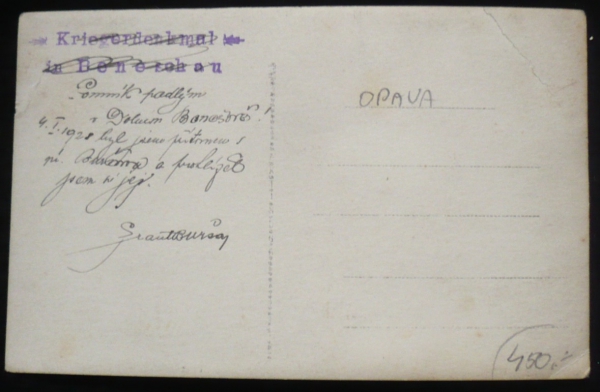 Kriegerdenkmal
in Beneschau
Pomník padlým
v Dolním Benešově!
4. I. 1928 byl jsem přítomen s
ní. Benešova a prohlížel
jsem si jej.
OPAVA
450,-